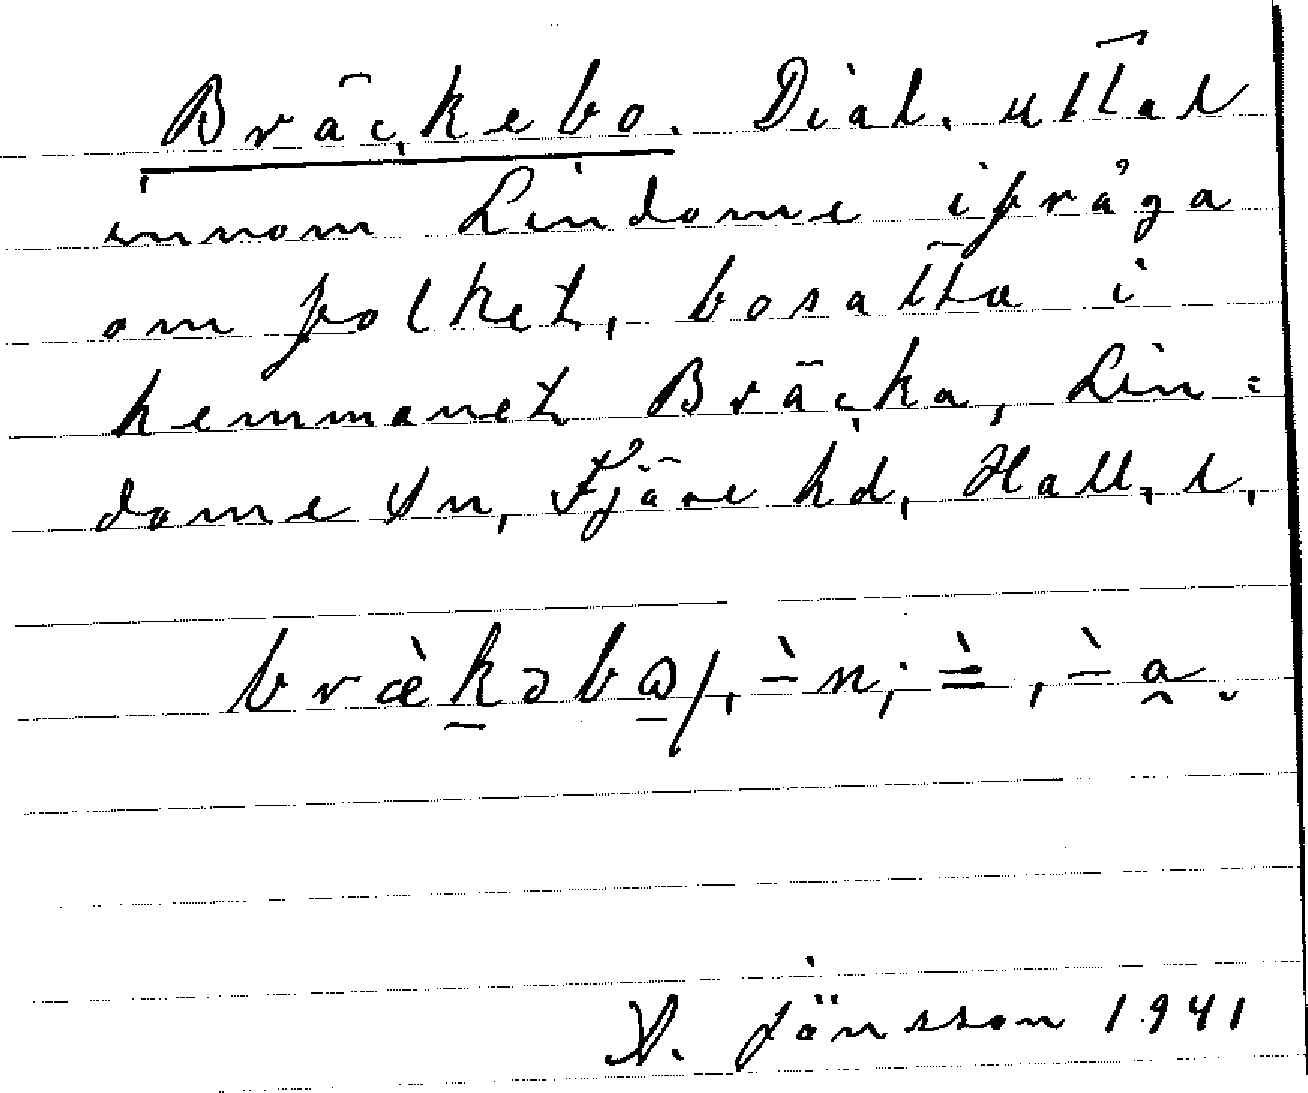 Bräckebo. Dial. uttal
innom Lindome ifråga
om folket, bosatta i
hemmanet Bräcka, Lin=
dome sn, Fjäre hd, Hall. l.
bræ̀kəbɷ/, -̀n; ≐, -̀a.
A. Jönsson 1941